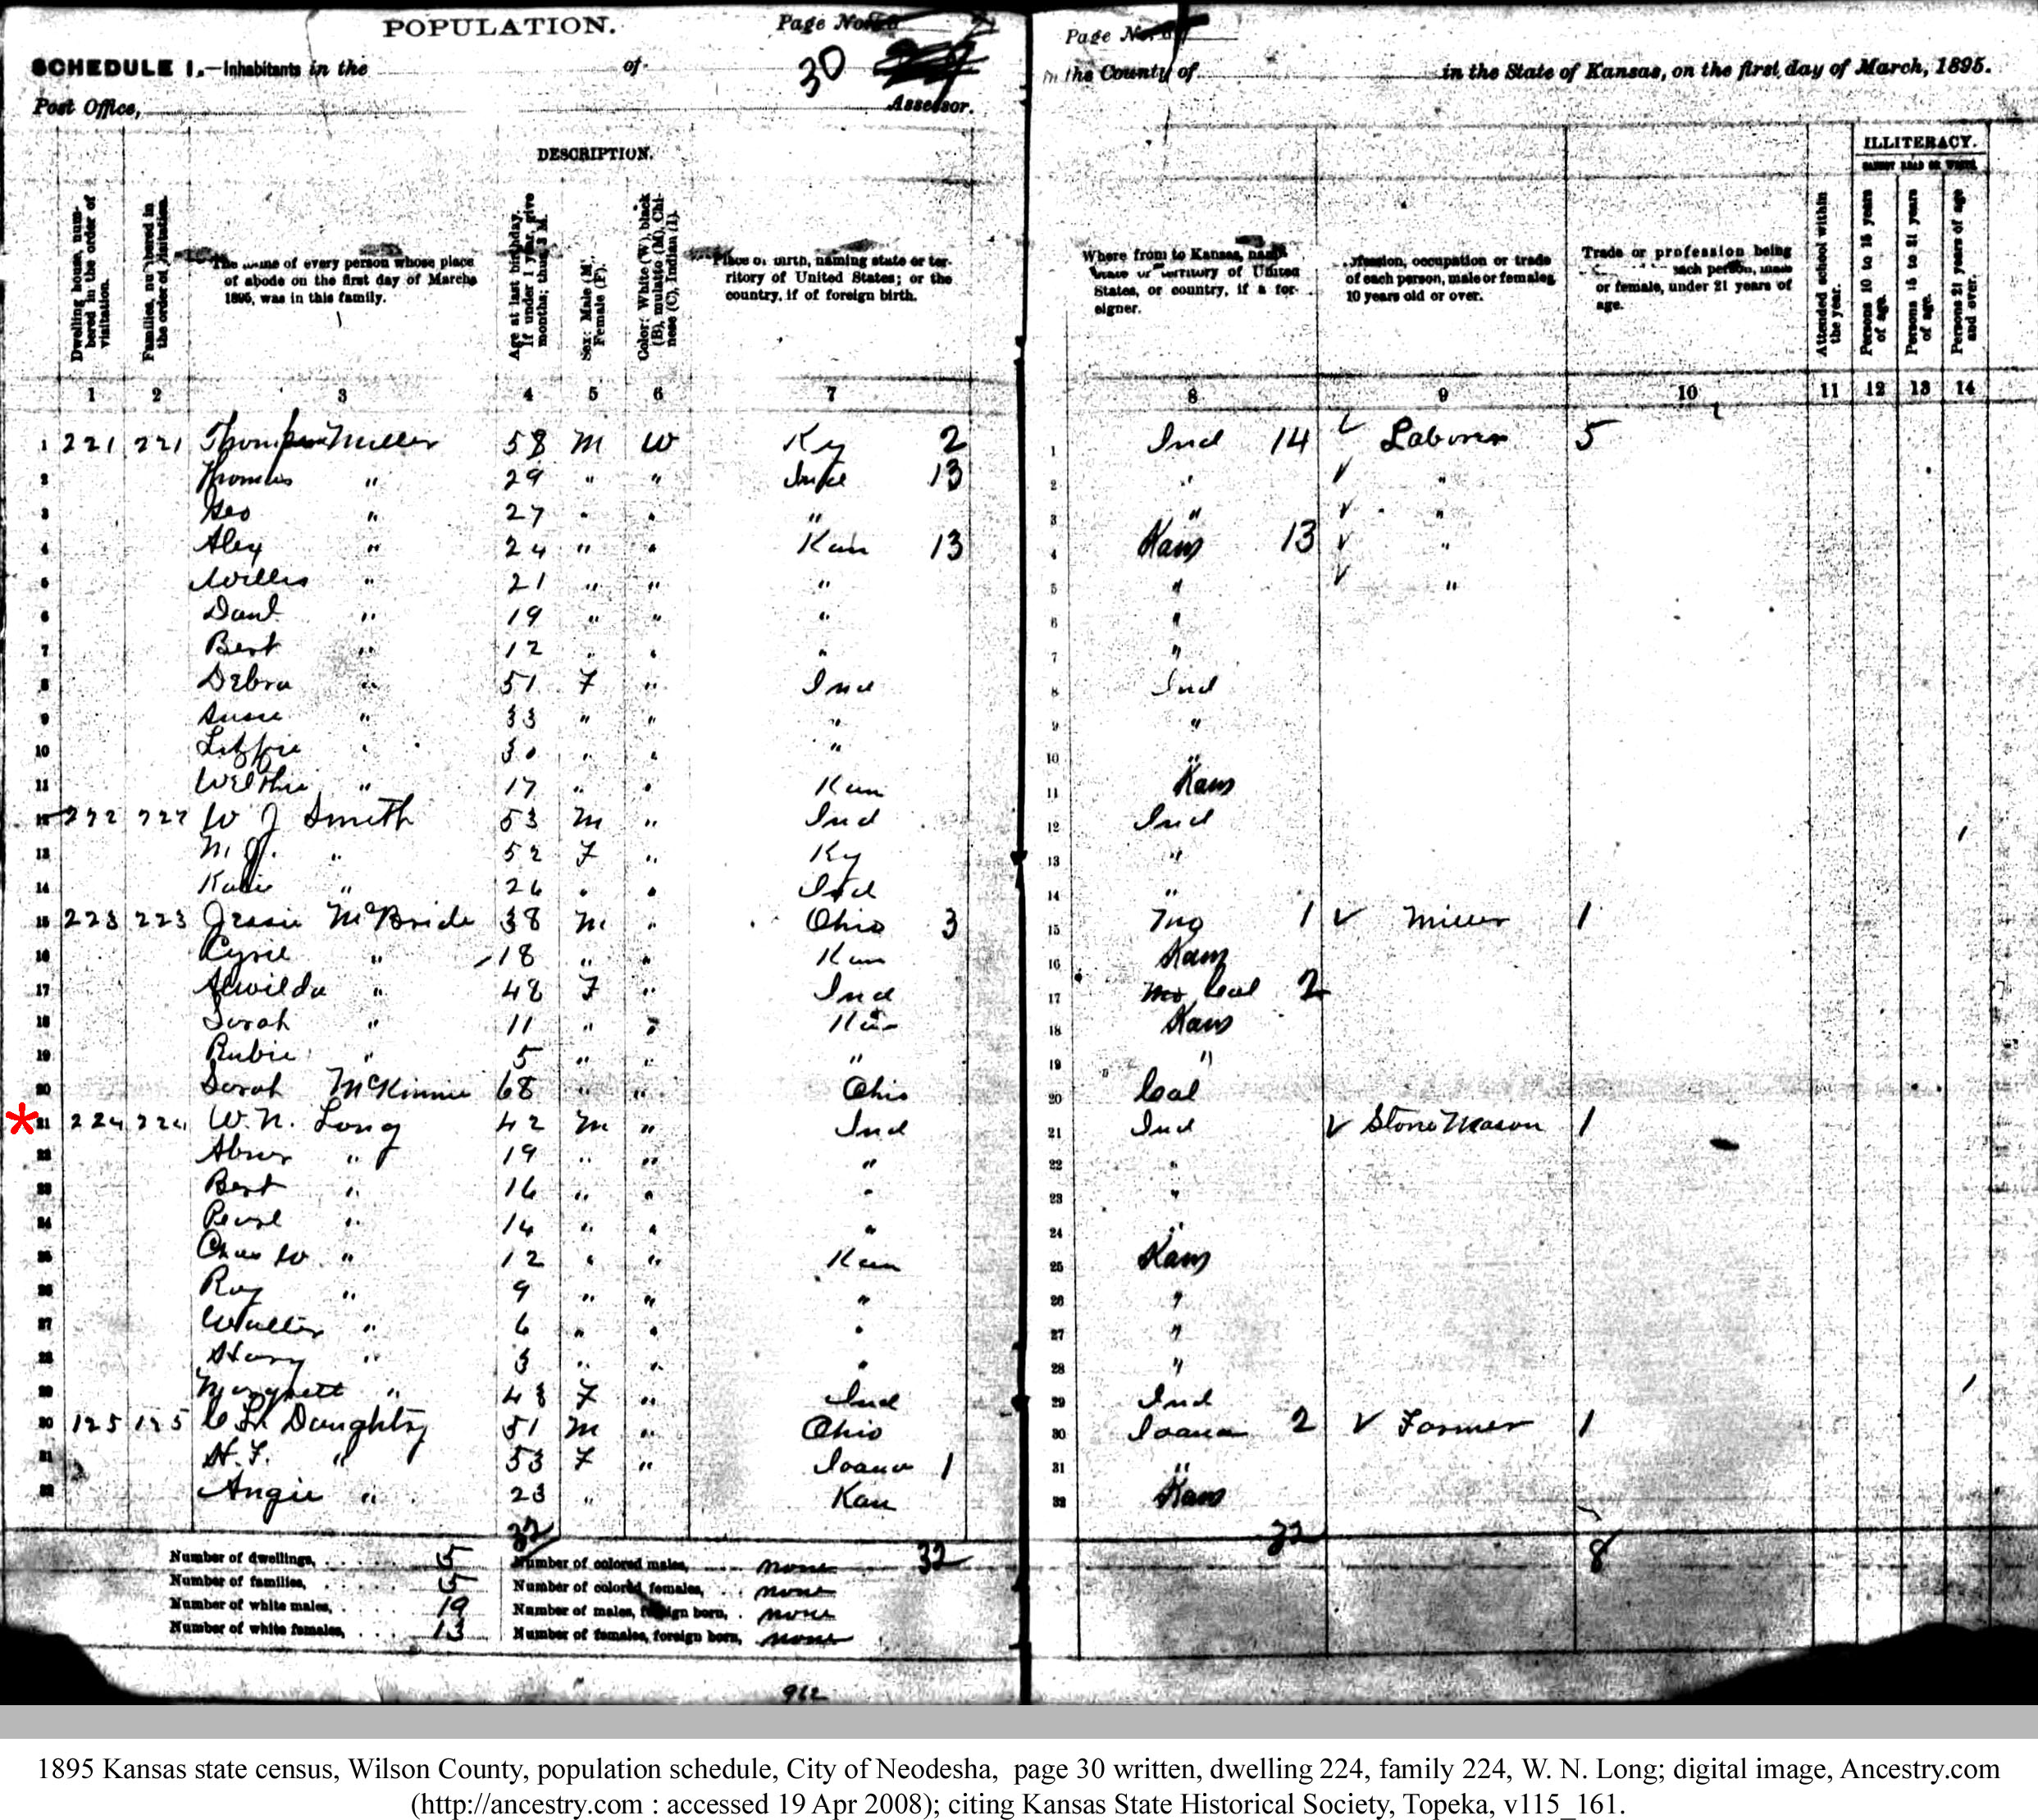 POPULATION.
Page No.
30
SCHEDULE I.—Inhabitants in the of
Post Office, Assessor.
Page No.
in the County of in the State of Kansas, on the first day of March, 1895.
DESCRIPTION.
ILLITERACY.
CANNOT READ OR WRITE.
Dwelling house, numbered in the order of visitation.
Families, numbered in the order of visitation.
The name of every person whose place of abode on the first day of March, 1895, was in this family.
Age at last birthday. If under 1 year, give months; thus, 3 M.
Sex: Male (M), Female (F).
Color: White (W), black (B), mulatto (M), Chinese (C), Indian (I).
Place of birth, naming state or territory of United States; or the country, if of foreign birth.
Where from to Kansas, naming state or territory of United States, or country, if a foreigner.
Profession, occupation or trade of each person, male or females, 10 years old or over.
Trade or profession being each person, male or female, under 21 years of age.
Attended school within the year.
Persons 10 to 15 years of age.
Persons 15 to 21 years of age.
Persons 21 years of age and over.
1 2 3 4 5 6 7 8 9 10 11 12 13 14
1 221 221 Miller 58 M W Ky 2 1 Ind 14 Laborer 5
2 Thomas " 29 " " 13 2 " "
3 Geo " 27 " " " 3 " "
4 Alex " 24 " " Kan 13 4 Kans 13 "
5 Willis " 21 " " " 5 " "
6 Danl " 19 " " " 6 "
7 Bert " 12 " " " 7 "
8 Debra " 51 F " Ind 8 Ind
9 Susie " 33 " " " 9 "
10 Lizzie " 30 " " " 10 "
11 " 17 " " Kan 11 Kans
12 222 222 W J Smith 53 M " Ind 12 Ind
13 M. J. " 52 F " Ky 13 "
14 Katie " 26 " " Ind 14 "
15 223 223 Jessie McBride 38 M " Ohio 3 15 Mo 1 Miller 1
16 Cyril " 18 " " Kan 16 Kans
17 Alwilda " 48 F " Ind 17 Mo Cal 2
18 Sarah " 11 " " Kan 18 Kans
19 Rubie " 5 " " " 19 "
20 Sarah McKinnie 68 " " Ohio 20 Cal
* 21 224 224 W. N. Long 42 M " Ind 21 Ind Stone Mason 1
22 Abner " 19 " " " 22 "
23 Bert " 16 " " " 23 "
24 Pearl " 14 " " " 24 "
25 Chas W. " 12 " " Kan 25 Kans
26 Roy " 9 " " " 26 "
27 Walter " 6 " " " 27 "
28 Harry " 3 " " " 28 "
29 " 43 F " Ind 29 Ind
30 125 125 Daughtry 51 M " Ohio 30 2 Farmer 1
31 H. F. " 53 F " 1 31 "
32 Angie " 23 " Kan 32 Kans
32 32 32 8
Number of dwellings, 5 Number of colored males, none
Number of families, 5 Number of colored females, none
Number of white males, 19 Number of males, foreign born, none
Number of white females, 13 Number of females, foreign born, none
962
1895 Kansas state census, Wilson County, population schedule, City of Neodesha, page 30 written, dwelling 224, family 224, W. N. Long; digital image, Ancestry.com
(http://ancestry.com : accessed 19 Apr 2008); citing Kansas State Historical Society, Topeka, v115_161.